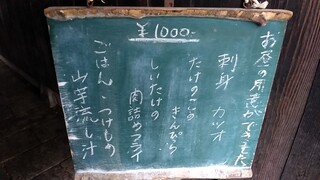 お昼の用意ができました
¥1000-
刺身 カツオ
たけのこの
きんぴら
しいたけの
肉詰めフライ
ごはん・つけもの
山芋流し汁